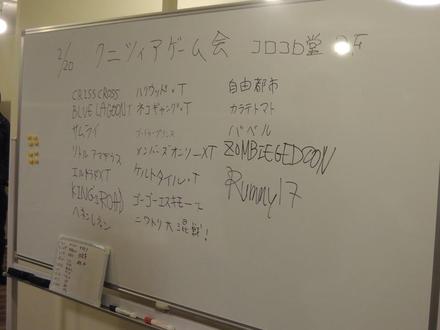 2/20 クニツィアゲーム会 コロコロ堂
CRISS CROSS
BLUE LAGOON T
サムライ
リトルアマデウス
エルドラドXT
KING's ROAD
ヘキレキ
ハリウッド・T
ネコギャング・T
メンバーズオンリーXT
ケルトタイル・T
ゴーゴーエスキモーT
ニワトリ大混戦!
自由都市
カラテトマト
バベル
ZOMBIEGEDDON
Rummy17